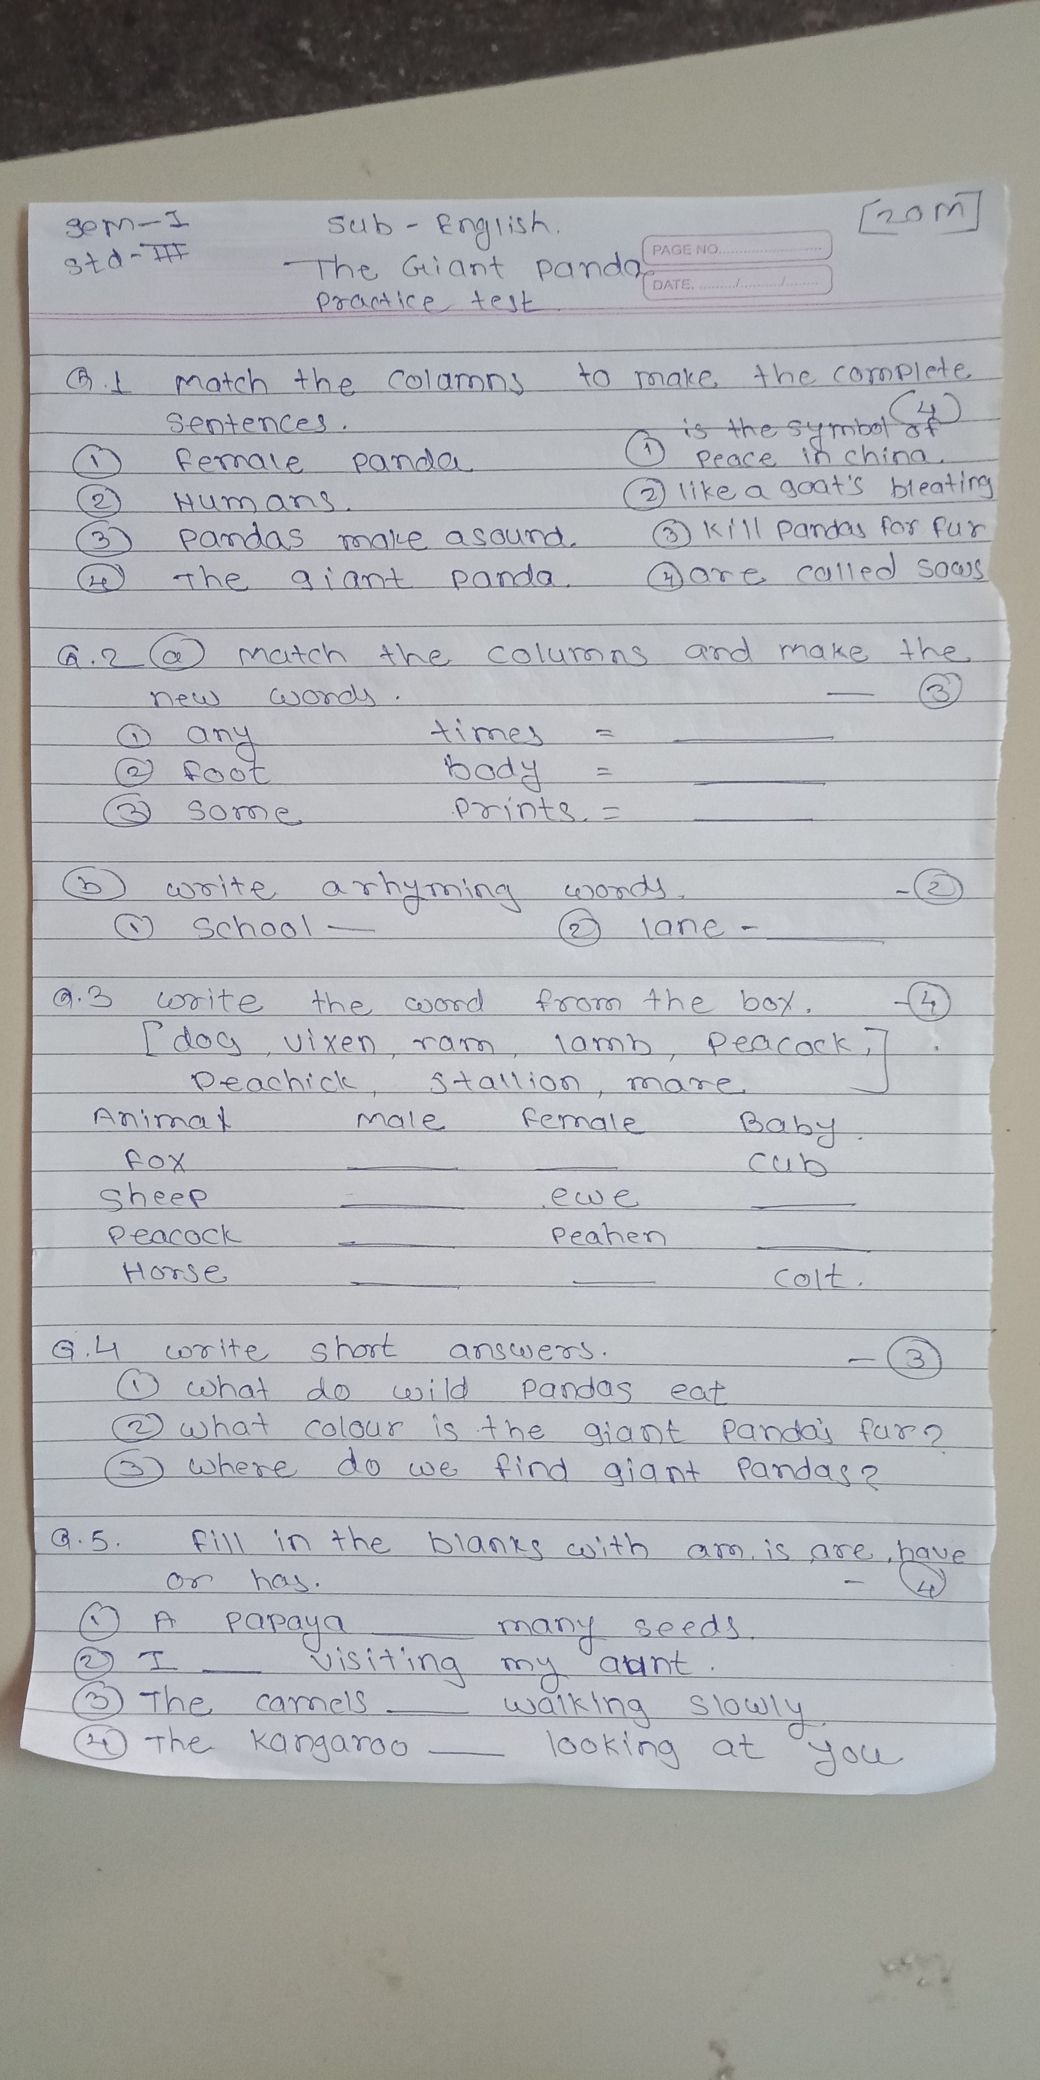 sem-I Sub - English. [20M]
std-III The Giant Panda
PAGE NO.
DATE. / /
Practice test
Q.1 Match the colamns to make the complete
sentences. (4)
① female panda ① is the symbol of
Peace in china.
② Humans. ② like a goat's bleating
③ Pandas make asound. ③ Kill Pandas for fur
④ The giant panda. ④ are called sows
Q.2 ⓐ Match the columns and make the
new words. — ③
① any times = ______
② foot body = ______
③ some prints. = ______
ⓑ write arhyming words. - ②
① school — ② lane - ______
Q.3 write the word from the box. - ④
[dog, vixen, ram, lamb, Peacock,]
Peachick, Stallion, mare
Animal male female Baby.
fox ______ ______ cub
Sheep ______ ewe ______
Peacock ______ Peahen ______
Horse ______ ______ colt.
Q.4 write short answers. - ③
① what do wild Pandas eat
② what colour is the giant Panda's fur?
③ where do we find giant Pandas?
Q.5. fill in the blanks with am, is are, have
or has. - ④
① A papaya ______ many seeds.
② I ______ visiting my aunt.
③ The camels ______ walking slowly.
④ The kangaroo ______ looking at you